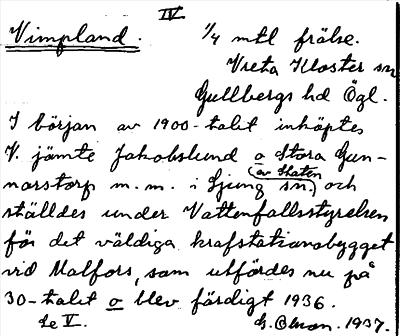 IV
Vimpland. 1/4 mtl frälse.
Vreta Kloster sn
Gullbergs hd Ögl.
I början av 1900-talet inköptes
V. jämte Jakobslund o Stora Gun-
narstorp m.m. i Ljung sn. (av Staten) och
ställdes under Vattenfallsstyrelsen
för det väldiga krafstationsbygget
vid Malfors, som utfördes nu på
30-talet o blev färdigt 1936.
Se V. G. Olson. 1937.